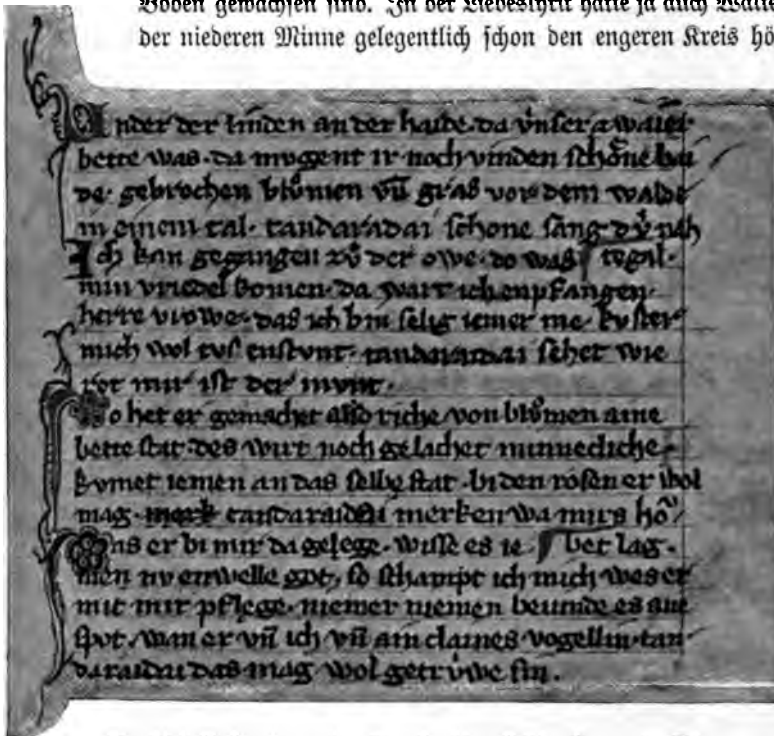 Boden gewachsen sind. In der Liebeslyrik hatte ja auch
der niederen Minne gelegentlich schon den engeren Kreis
nder der linden an der haide. da vnser zwaier
bette was. da mugent ir noch vinden schone bai
de. gebrochen blůmen vn̄ gras vor dem walde
in einem tal. tandaradai schone sang dv̓ nah
Ich kan gegangen zů der owe. do was tegal.
min vriedel komen. da wart ich enpfangen.
herre vrowe. das ich bin selig iemer me. kvster
mich wol tvs entstvnt. tandaradai sehet wie
rot mir ist der mvnt.
Do het er gemachet also riche von blůmen aine
bette stat. des wirt noch gelachet minnecliche
kvmet iemen an das selbe stat. bi den rosen er wol
mag. merk tandaraidei merken wa mirs hǒ
as er bi mir da gelege. wisse es ie bet lag.
men nv enwelle got, so schampt ich mich wes er
mit mir pflege. niemer niemen bevinde es ane
spot. wan er vn̄ ich vn̄ ain claines vogellin. tan
daraidai das mag wol getrv̓we sin.